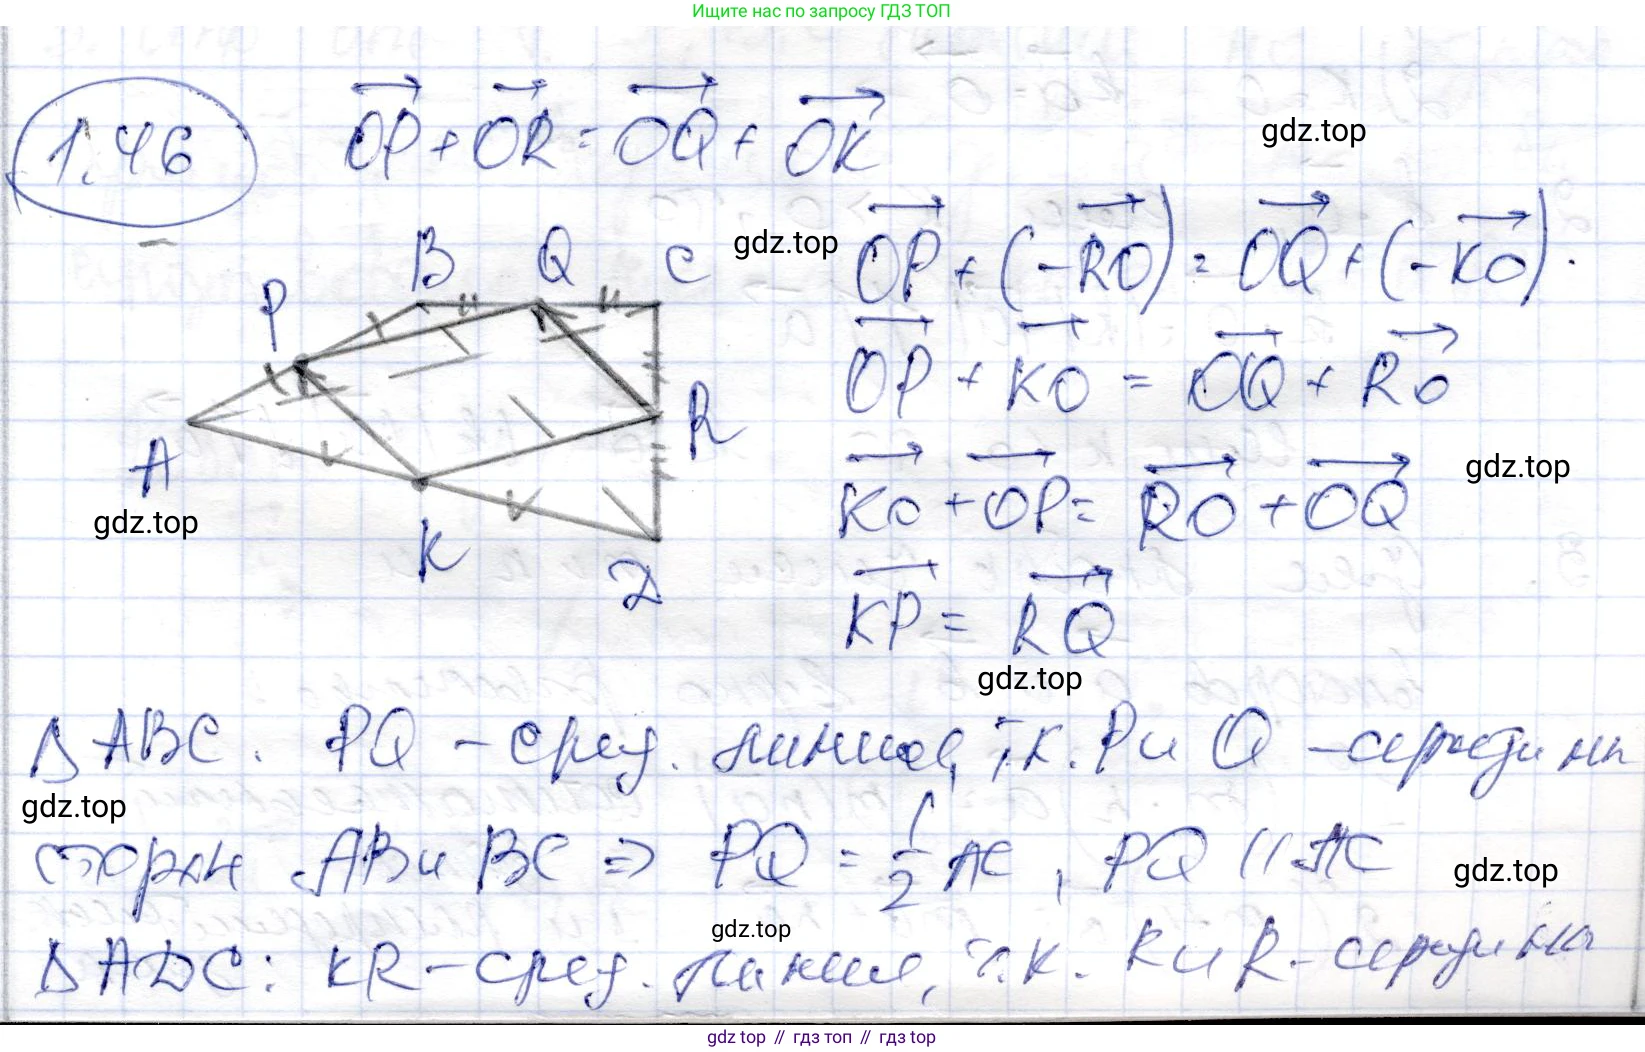 Ищите нас по запросу ГДЗ ТОП
1.46
OP + OR = OQ + OK
gdz.top
B Q C
gdz.top
OP + (-RO) = OQ + (-KO).
P
OP + KO = OQ + RO
R
A
gdz.top
KO + OP = RO + OQ
gdz.top
K
D
KP = RQ
gdz.top
Δ ABC. PQ - сред. линия, т.к. P и Q - середины
gdz.top
сторон AB и BC ⇒ PQ = 1/2 AC, PQ || AC
gdz.top
gdz.top
Δ ADC: KR - сред. линия, т.к. K и R - середина
gdz top // гдз топ // gdz top